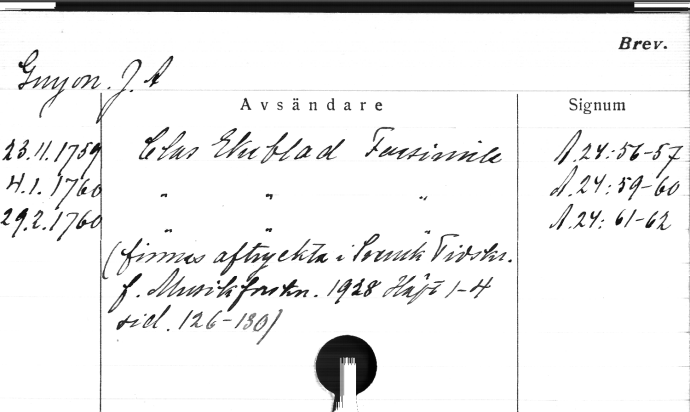 Brev.
Guyon. J. A
Avsändare Signum
23.11.1759 Clas Ekeblad Facsimile A.24:56-57
4.1.1760 " " " A.24:59-60
29.2.1760 " " " A.24:61-62
(finnes aftryckta i Svensk Tidskr.
f. Musikforskn. 1928 Häft 1-4
sid. 126-130)